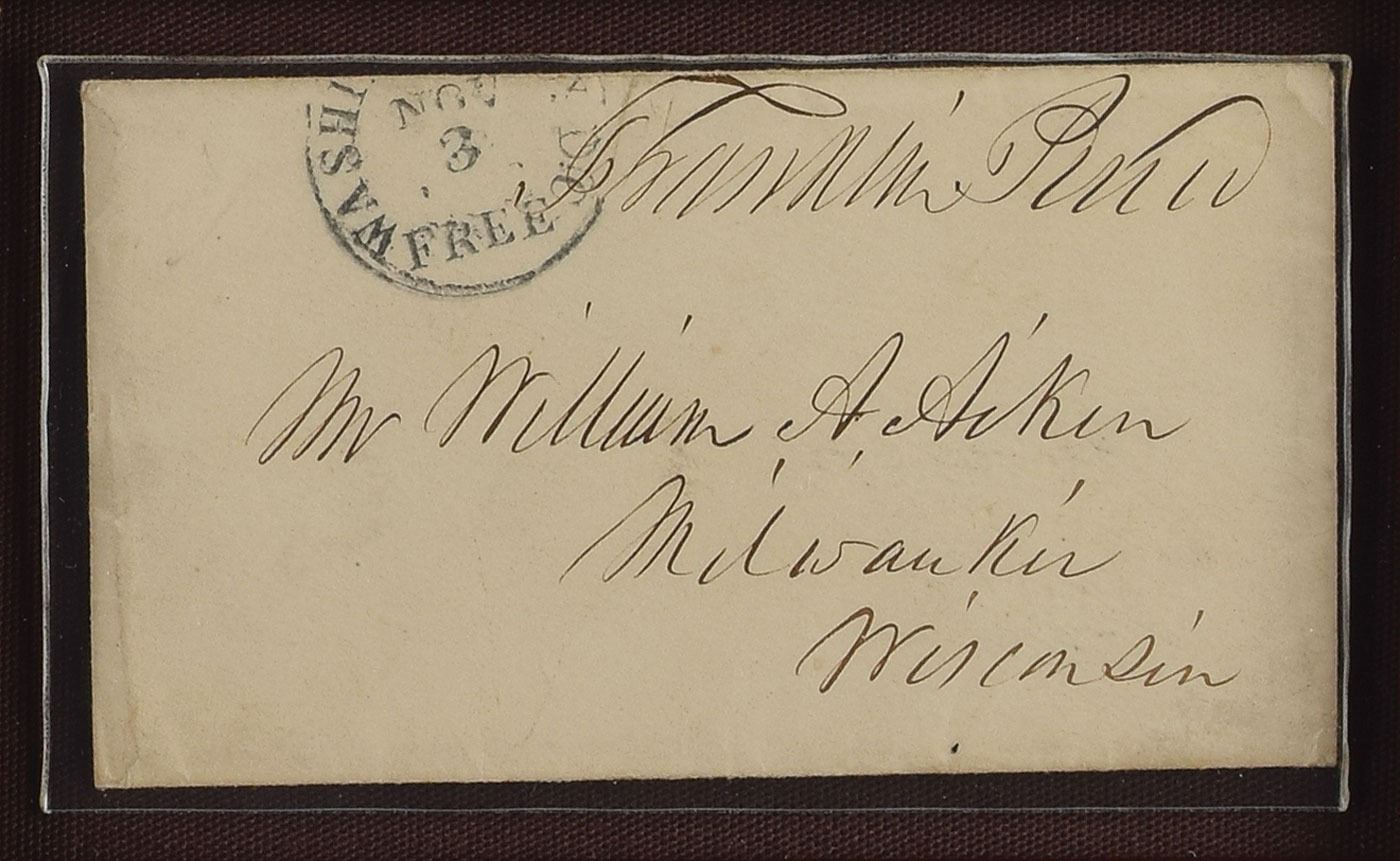 WASHI
NOV
3
FREE
Franklin Pierce
Mr William A. Aiken
Milwaukie
Wisconsin